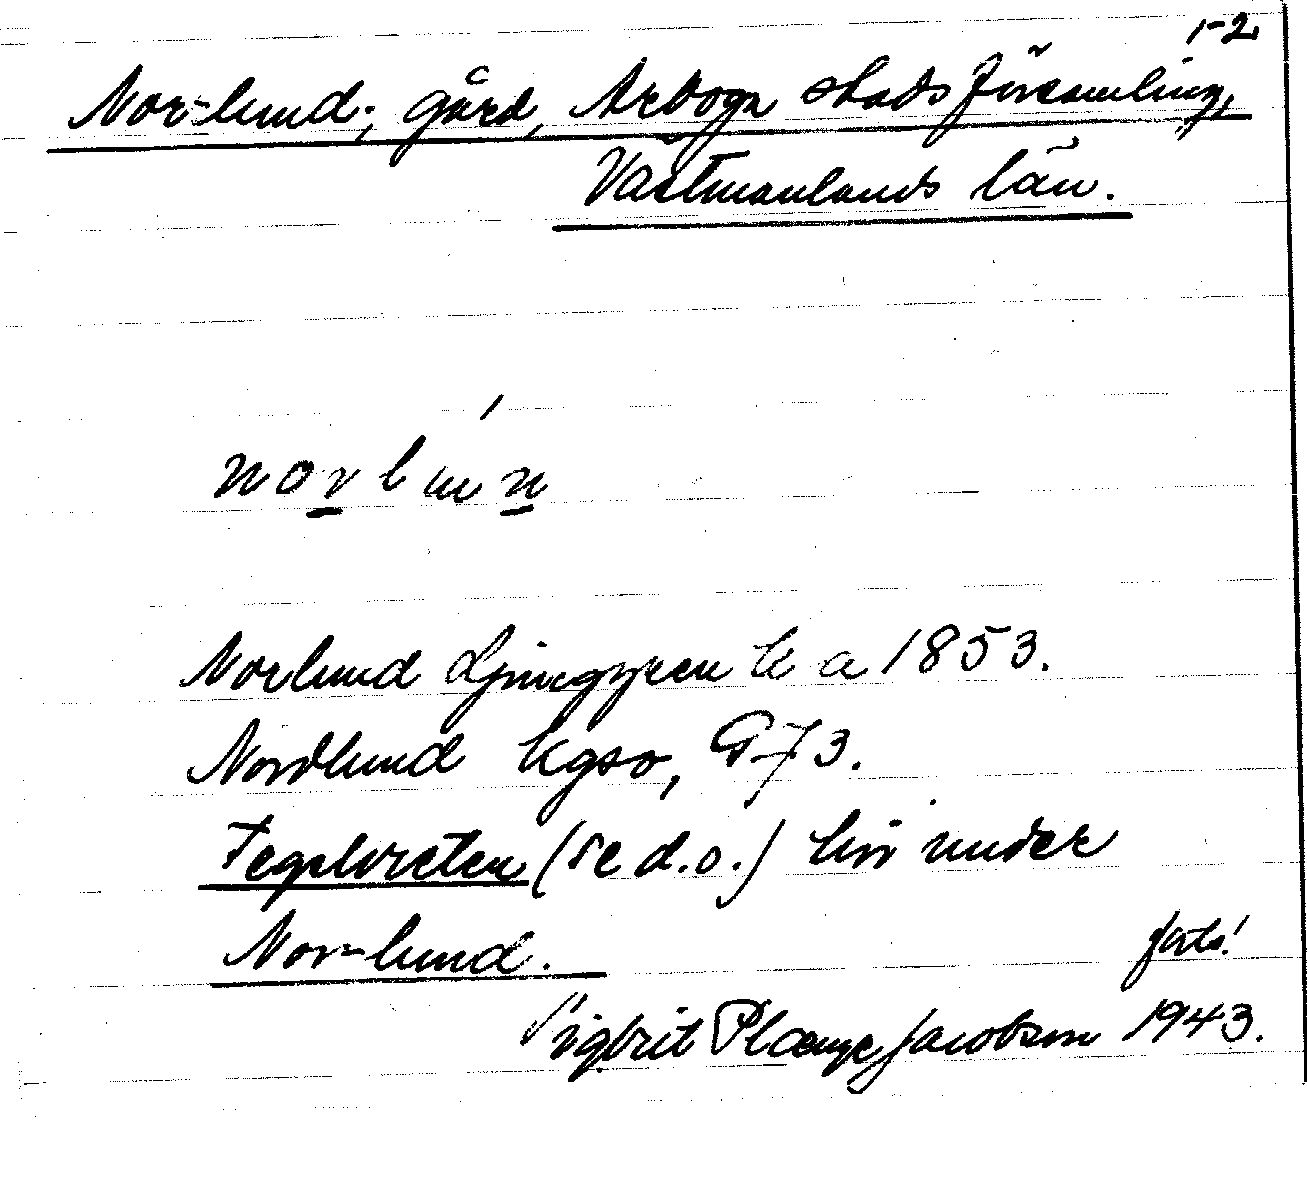 1-2
Nor-lund; gård, Arboga stadsförsamling,
Västmanlands län.
norlun
Norlund Ljunggren k a 1853.
Nordlund kgso, G73.
Tegelvreten (se d.o.) hör under
Nor-lund.
forts!
Sigbrit Plænge Jacobson 1943.